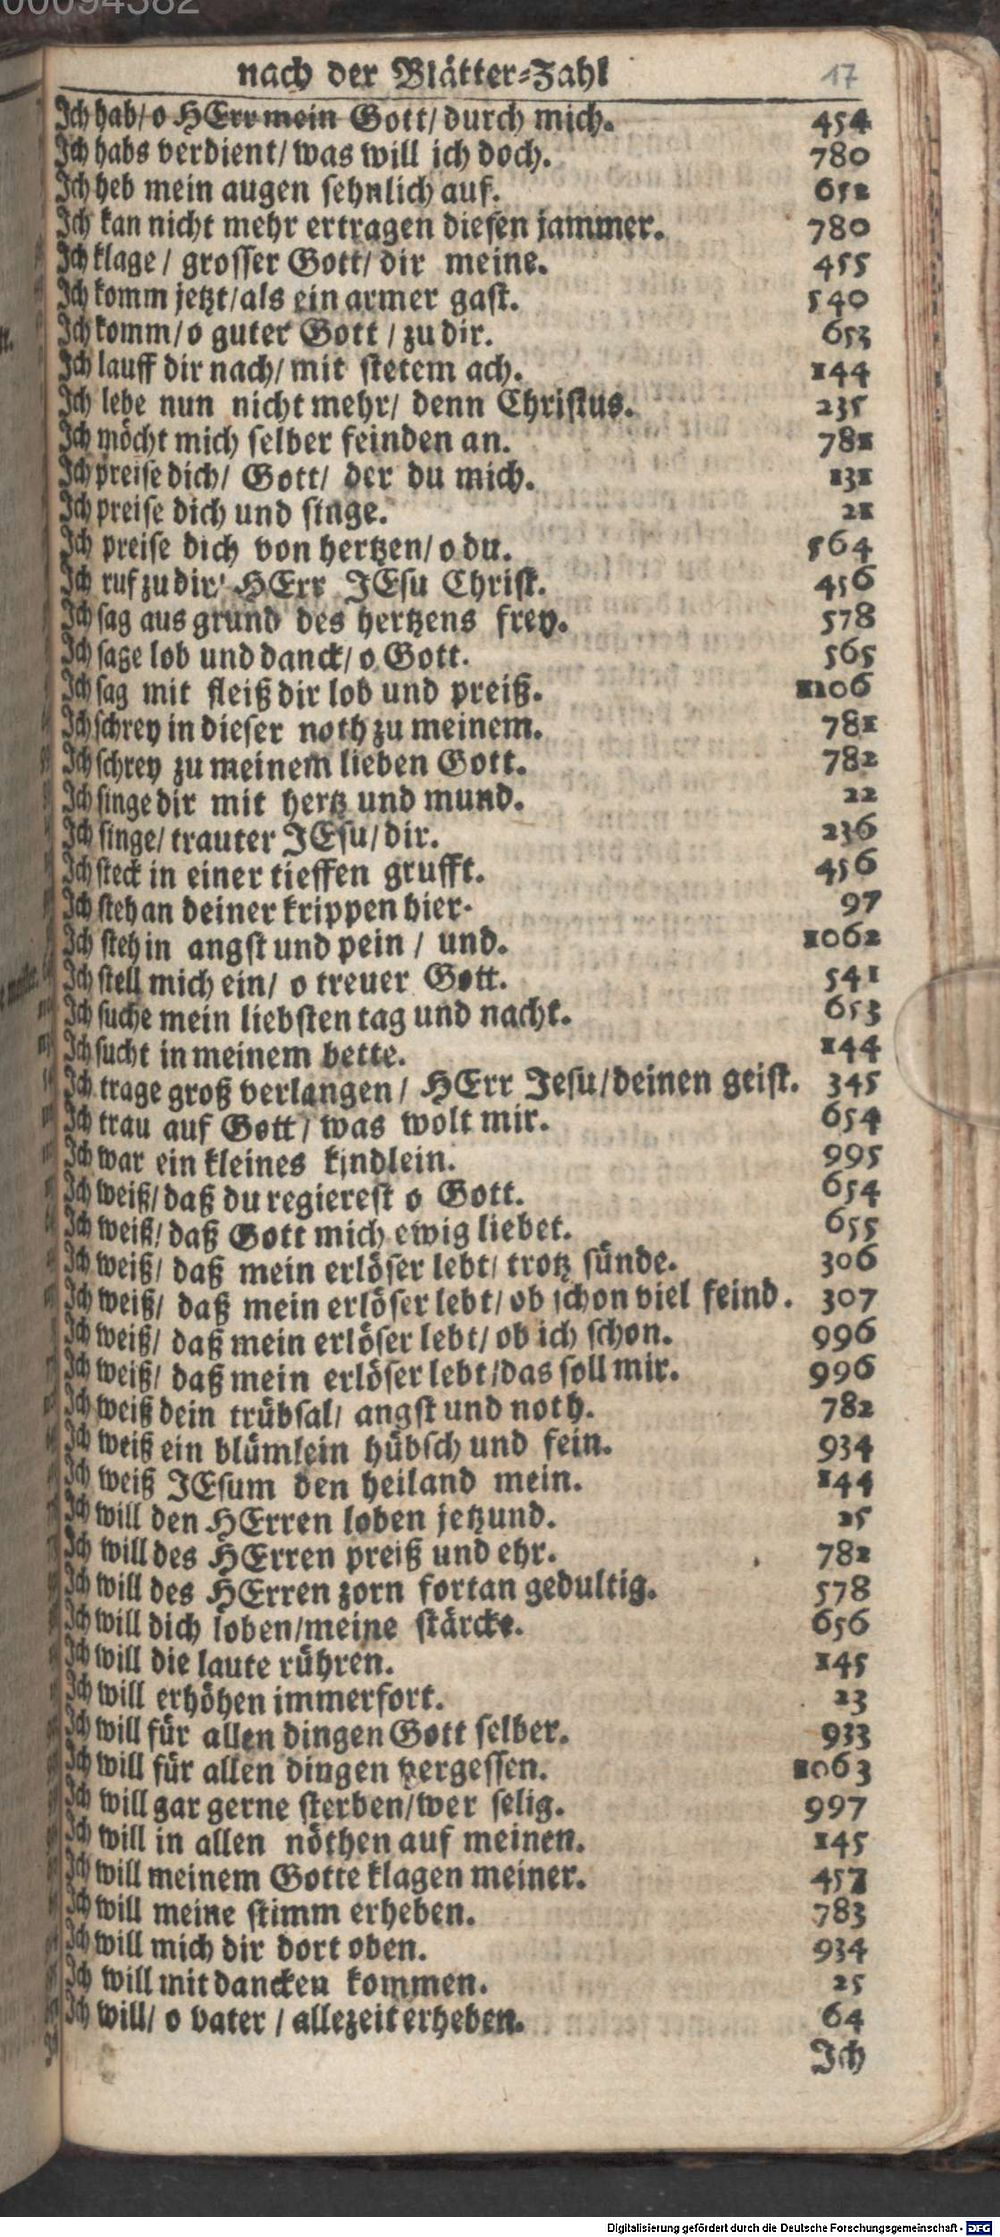 00094382
nach der Blätter-Zahl 17
Ich hab/ o HErr mein Gott/ durch mich. 454
Ich habs verdient/ was will ich doch. 780
Ich heb mein augen sehnlich auf. 652
Ich kan nicht mehr ertragen diesen jammer. 780
Ich klage / grosser Gott/ dir meine. 455
Ich komm jetzt/ als ein armer gast. 540
Ich komm/ o guter Gott / zu dir. 653
Ich lauff dir nach/ mit stetem ach. 144
Ich lebe nun nicht mehr/ denn Christus. 235
Ich möcht mich selber feinden an. 781
Ich preise dich/ Gott/ der du mich. 131
Ich preise dich und singe. 21
Ich preise dich von hertzen/ o du. 564
Ich ruf zu dir/ HErr JEsu Christ. 456
Ich sag aus grund des hertzens frey. 578
Ich sage lob und danck/ o Gott. 565
Ich sag mit fleiß dir lob und preiß. 1106
Ich schrey in dieser noth zu meinem. 781
Ich schrey zu meinem lieben Gott. 782
Ich singe dir mit hertz und mund. 22
Ich singe/ trauter JEsu/ dir. 236
Ich steck in einer tieffen grufft. 456
Ich steh an deiner krippen hier. 97
Ich steh in angst und pein / und. 1062
Ich stell mich ein/ o treuer Gott. 541
Ich suche mein liebsten tag und nacht. 653
Ich sucht in meinem bette. 144
Ich trage groß verlangen / HErr Jesu/ deinen geist. 345
Ich trau auf Gott / was wolt mir. 654
Ich war ein kleines kindlein. 995
Ich weiß/ daß du regierest o Gott. 654
Ich weiß/ daß Gott mich ewig liebet. 655
Ich weiß/ daß mein erlöser lebt/ trotz sünde. 306
Ich weiß/ daß mein erlöser lebt/ ob schon viel feind. 307
Ich weiß/ daß mein erlöser lebt/ ob ich schon. 996
Ich weiß/ daß mein erlöser lebt/ das soll mir. 996
Ich weiß dein trübsal/ angst und noth. 782
Ich weiß ein blümlein hübsch und fein. 934
Ich weiß JEsum den heiland mein. 144
Ich will den HErren loben jetzund. 25
Ich will des HErren preiß und ehr. 782
Ich will des HErren zorn fortan gedultig. 578
Ich will dich loben/ meine stärcke. 656
Ich will die laute rühren. 145
Ich will erhöhen immerfort. 23
Ich will für allen dingen Gott selber. 933
Ich will für allen dingen vergessen. 1063
Ich will gar gerne sterben/ wer selig. 997
Ich will in allen nöthen auf meinen. 145
Ich will meinem Gotte klagen meiner. 457
Ich will meine stimm erheben. 783
Ich will mich dir dort oben. 934
Ich will mit dancken kommen. 25
Ich will/ o vater / allezeit erheben. 64
Ich
Digitalisierung gefördert durch die Deutsche Forschungsgemeinschaft - DFG